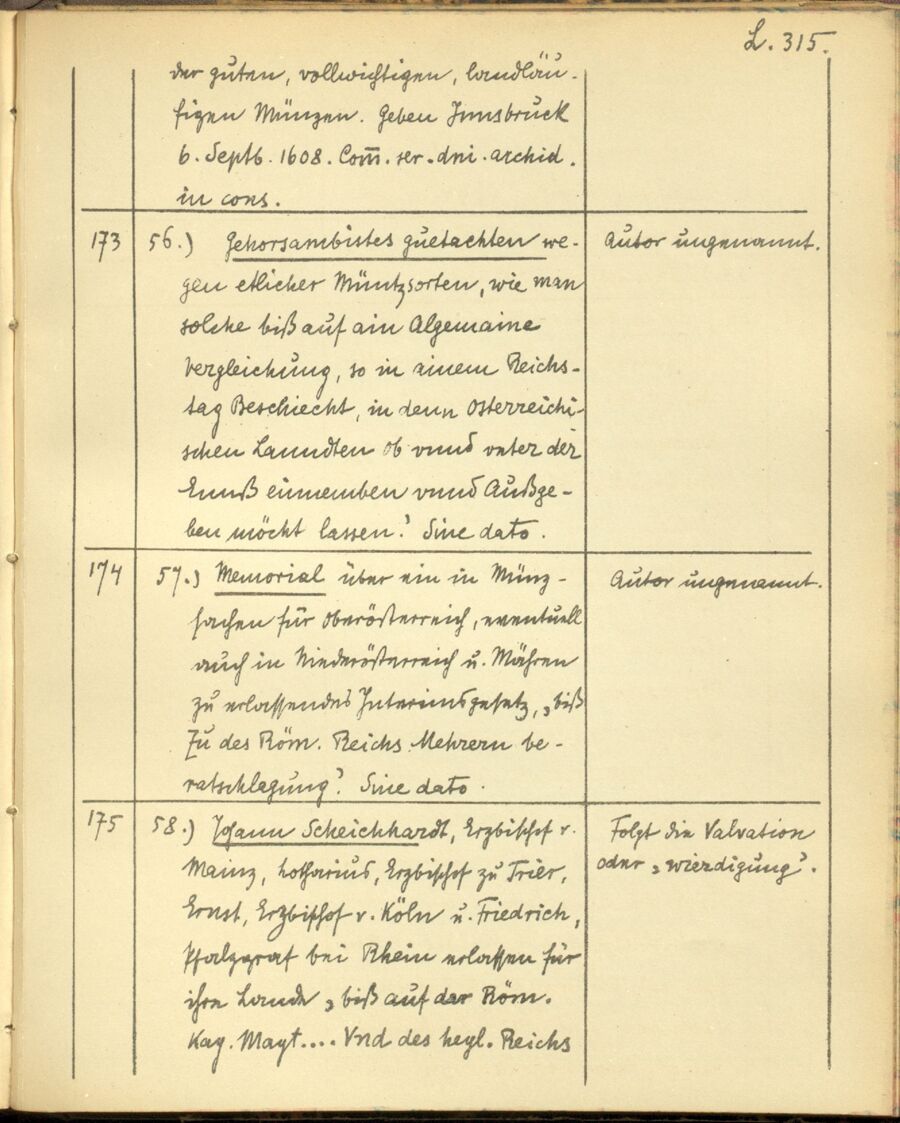 L. 315.
der guten, vollwichtigen, landläu-
figen Münzen. Geben Innsbruck
6. Septb. 1608. Com̅. ser. dni. archid.
in cons.
173 56.) Gehorsambistes guetachten we- Autor ungenannt.
gen etlicher Müntzsorten, wie man
solche biß auf ain Algemaine
Vergleichung, so in ainem Reichs-
tag Beschiecht, in denn Osterreichi-
schen Lanndten ob vnnd vnter der
Ennß einnemben vnnd Außge-
ben möcht lassen.' Sine dato.
174 57.) Memorial über ein in Münz- Autor ungenannt.
sachen für Oberösterreich, eventuell
auch in Niederösterreich u. Mähren
zu erlassendes Interimsgesetz, „biß
Zu des Röm. Reichs Mehrern be-
ratschlegung'. Sine dato.
175 58.) Johann Scheichhardt, Erzbischof v. Folgt die Valvation
Mainz, Lotharius, Erzbischof zu Trier, oder „wierdigung'.
Ernst, Erzbischof v. Köln u. Friedrich,
Pfalzgraf bei Rhein erlassen für
ihre Lande „biß auf der Röm.
Kay. Mayt.... Vnd des heyl. Reichs